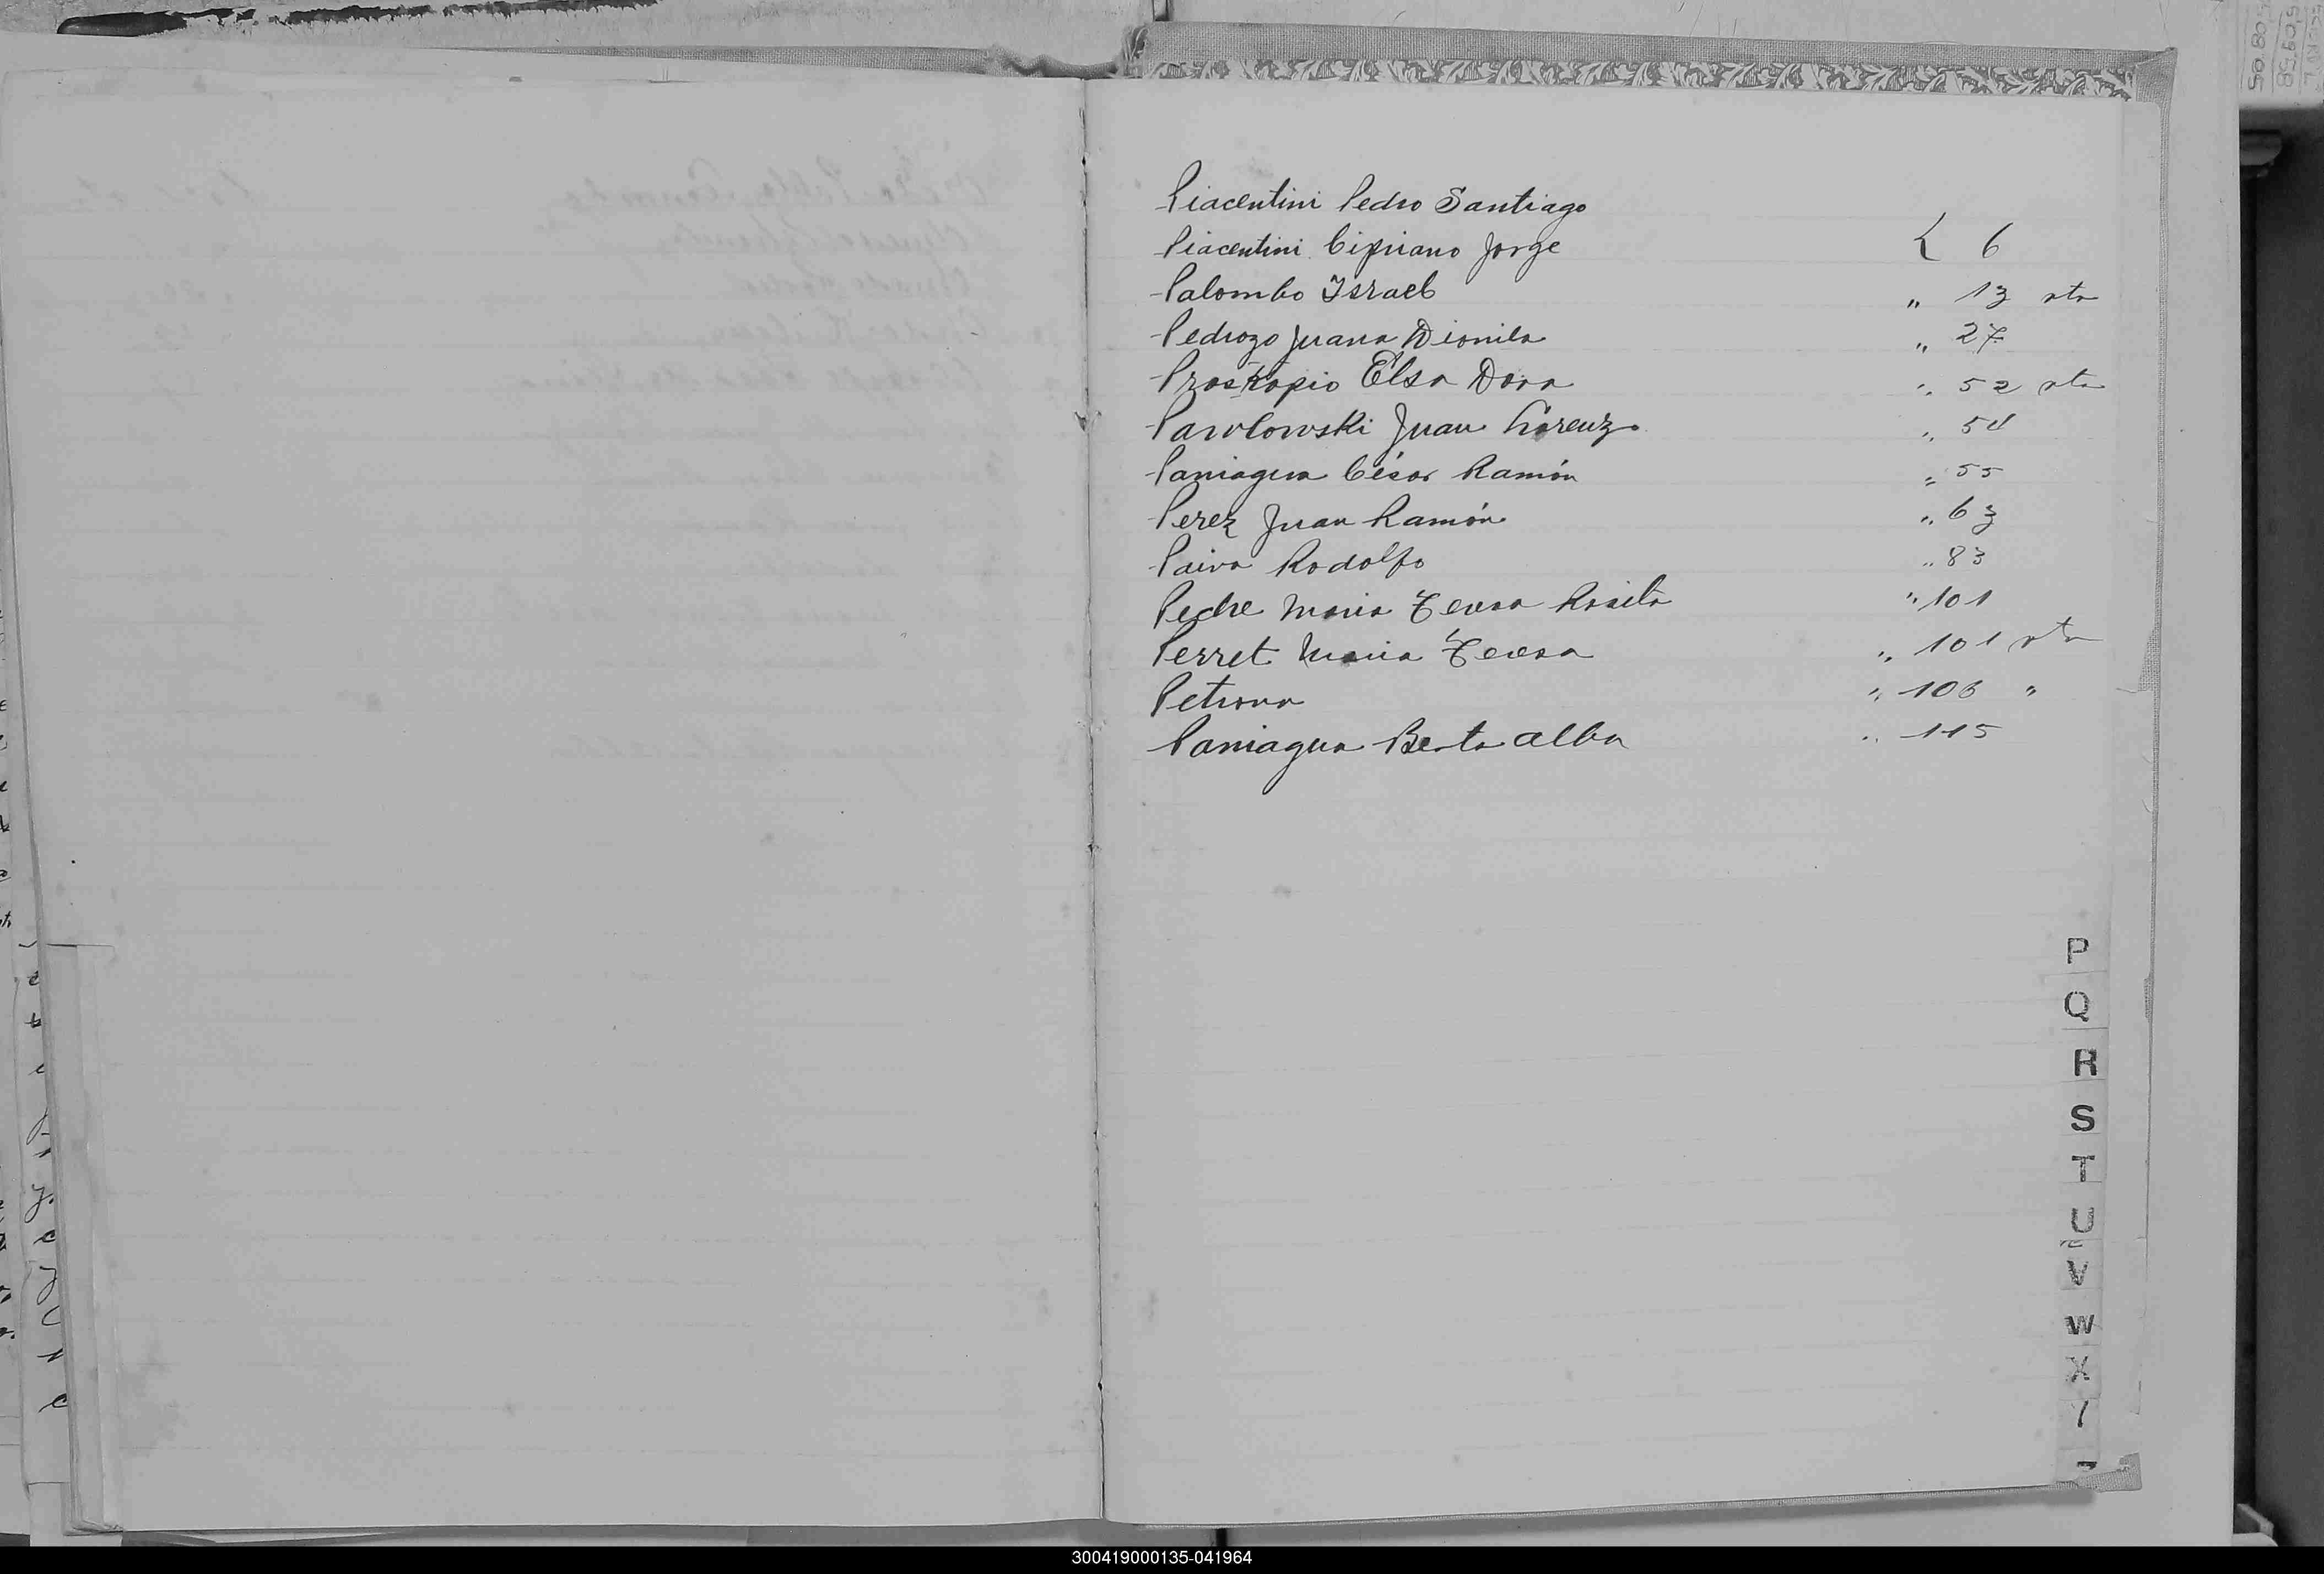 Piacentini Pedro Santiago
Piacentini Cipriano Jorge { 6
Palombo Israel " 13 vta
Pedrozo Juana Dionila " 27
Proskopio Elsa Dora " 52 vta
Pawlowski Juan Lorenzo " 54
Paniagua César Ramón " 55
Perez Juan Ramón " 63
Paiva Rodolfo " 83
Pedre Maria Teresa Rosita " 101
Perret Maria Teresa " 101 vta
Petrona " 106 "
Paniagua Berta Alba " 115
P
Q
R
S
T
U
V
W
X
300419000135-041964